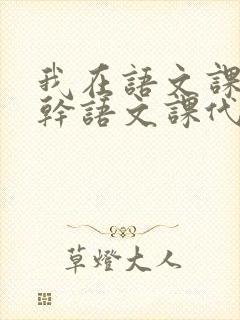 我在語文課
幹語文課代
草燈大人